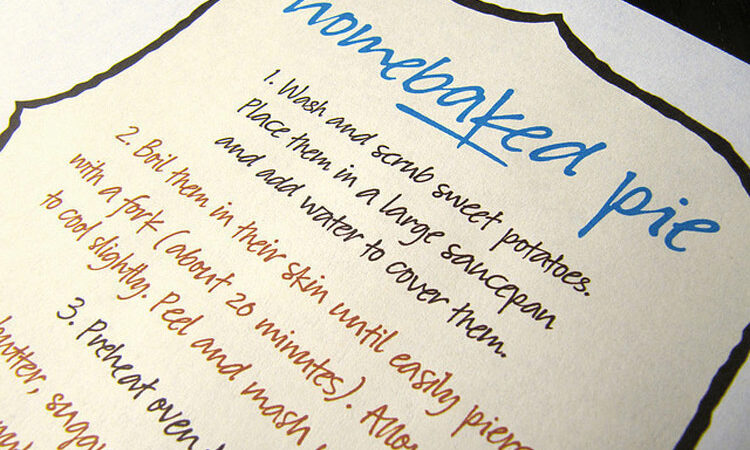 homebaked pie
1. Wash and scrub sweet potatoes.
Place them in a large saucepan
and add water to cover them.
2. Boil them in their skin until easily
with a fork (about 20 minutes).
to cool slightly. Peel and mash
3. Preheat oven